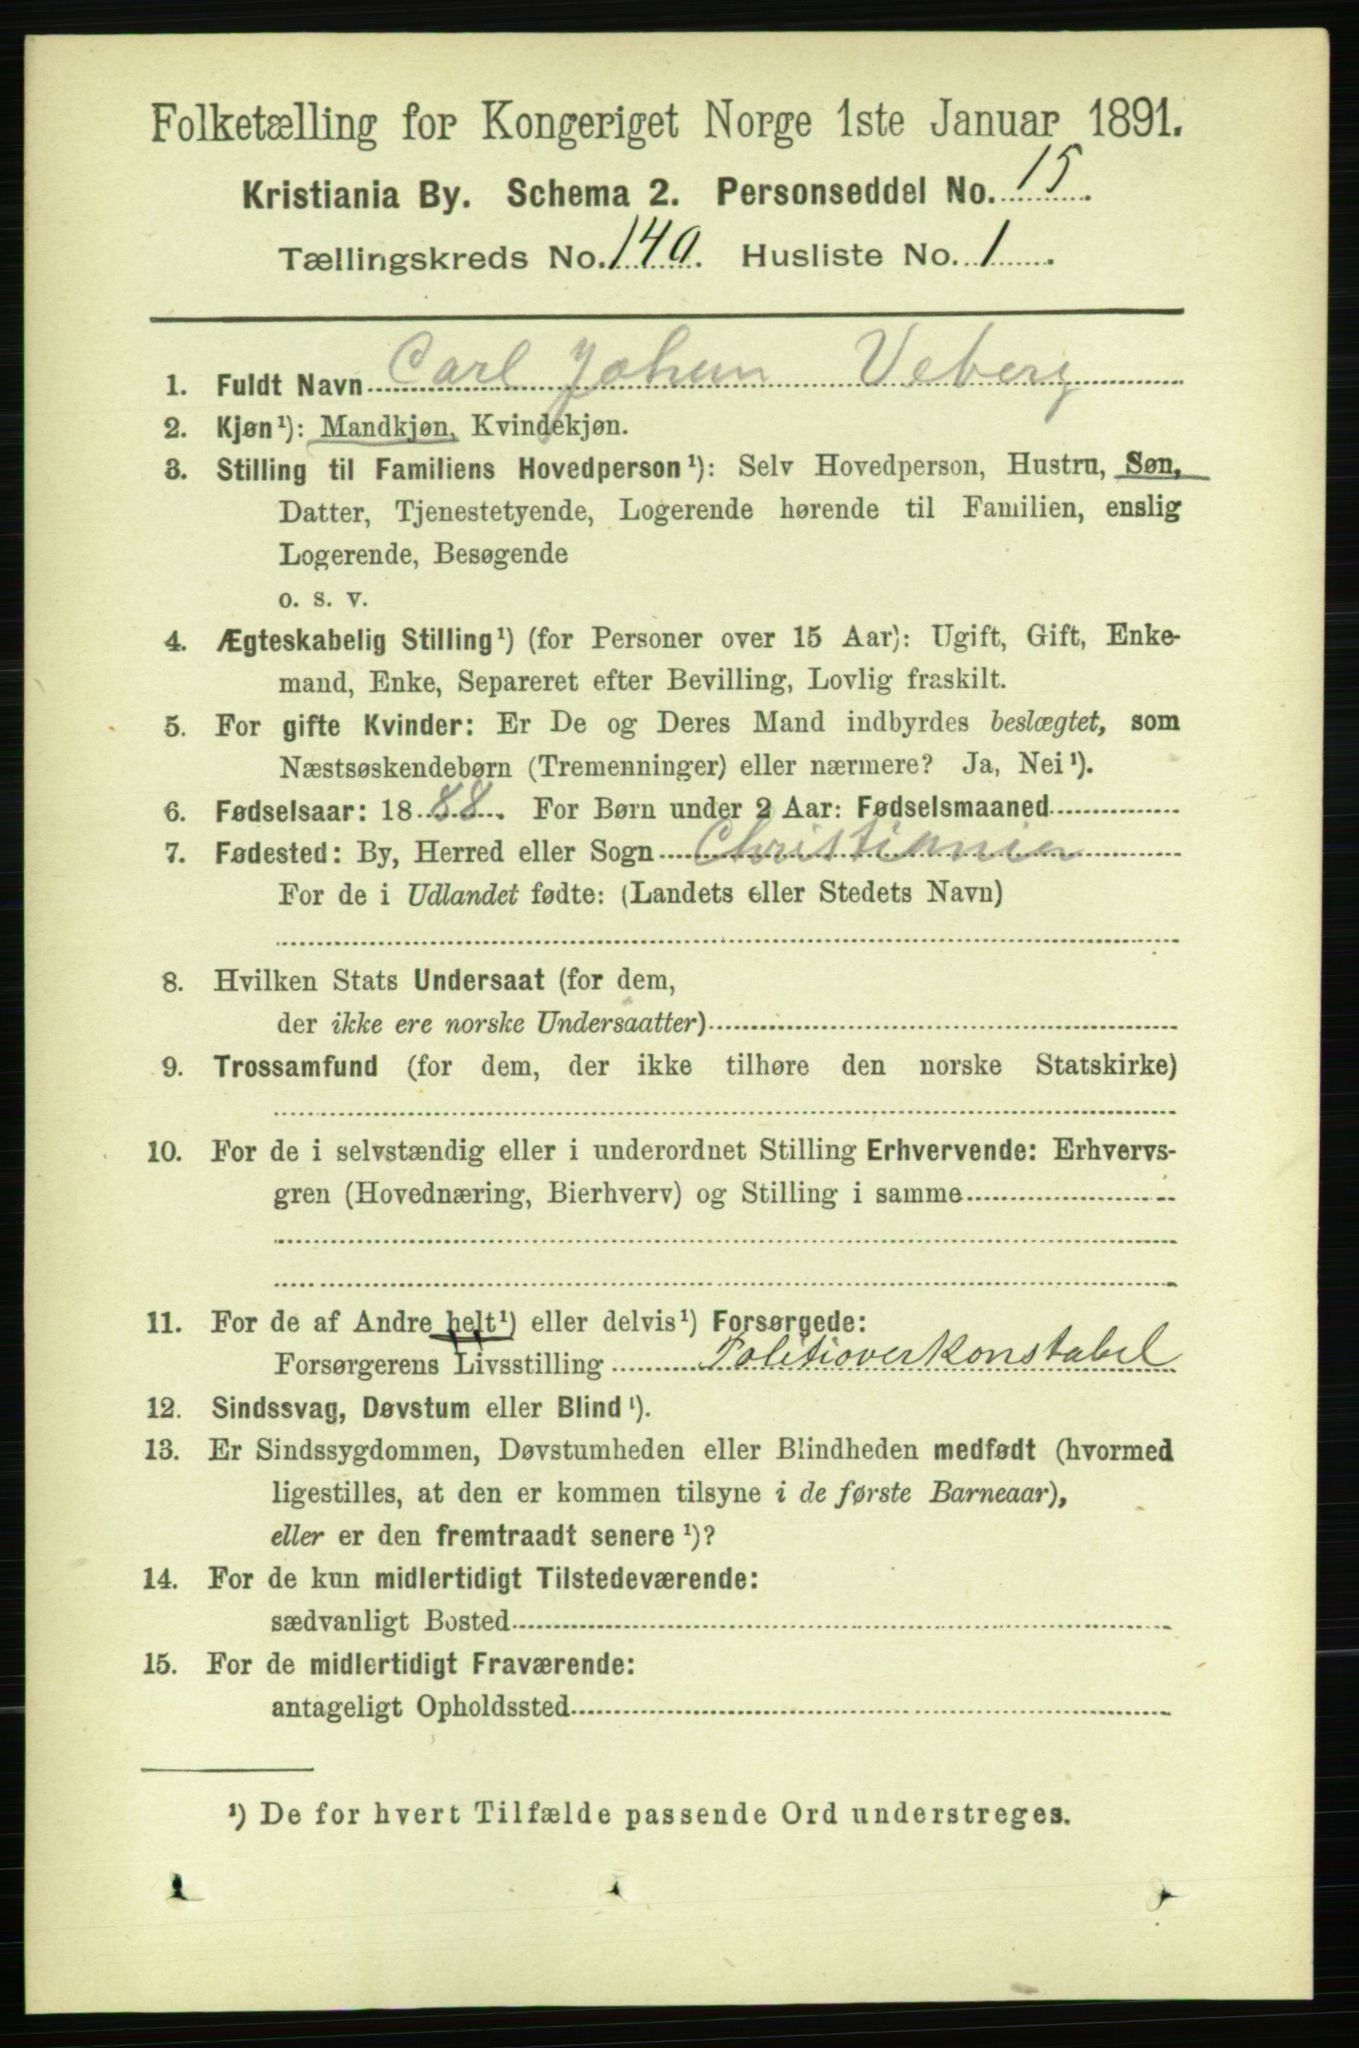 Folketælling for Kongeriget Norge 1ste Januar 1891.
Kristiania By. Schema 2. Personseddel No. 15.
Tællingskreds No. 140. Husliste No. 1.
1. Fuldt Navn Carl Johan Veberg
2. Kjøn¹): Mandkjøn, Kvindekjøn.
3. Stilling til Familiens Hovedperson¹): Selv Hovedperson, Hustru, Søn,
Datter, Tjenestetyende, Logerende hørende til Familien, enslig
Logerende, Besøgende
o. s. v.
4. Ægteskabelig Stilling¹) (for Personer over 15 Aar): Ugift, Gift, Enke-
mand, Enke, Separeret efter Bevilling, Lovlig fraskilt.
5. For gifte Kvinder: Er De og Deres Mand indbyrdes beslægtet, som
Næstsøskendebørn (Tremenninger) eller nærmere? Ja, Nei¹).
6. Fødselsaar: 1888. For Børn under 2 Aar: Fødselsmaaned
7. Fødested: By, Herred eller Sogn Christiania
For de i Udlandet fødte: (Landets eller Stedets Navn)
8. Hvilken Stats Undersaat (for dem,
der ikke ere norske Undersaatter)
9. Trossamfund (for dem, der ikke tilhøre den norske Statskirke)
10. For de i selvstændig eller i underordnet Stilling Erhvervende: Erhvervs-
gren (Hovednæring, Bierhverv) og Stilling i samme
11. For de af Andre helt¹) eller delvis¹) Forsørgede:
Forsørgerens Livsstilling Politioverkonstabel
12. Sindssvag, Døvstum eller Blind¹).
13. Er Sindssygdommen, Døvstumheden eller Blindheden medfødt (hvormed
ligestilles, at den er kommen tilsyne i de første Barneaar),
eller er den fremtraadt senere¹)?
14. For de kun midlertidigt Tilstedeværende:
sædvanligt Bosted
15. For de midlertidigt Fraværende:
antageligt Opholdssted
¹) De for hvert Tilfælde passende Ord understreges.